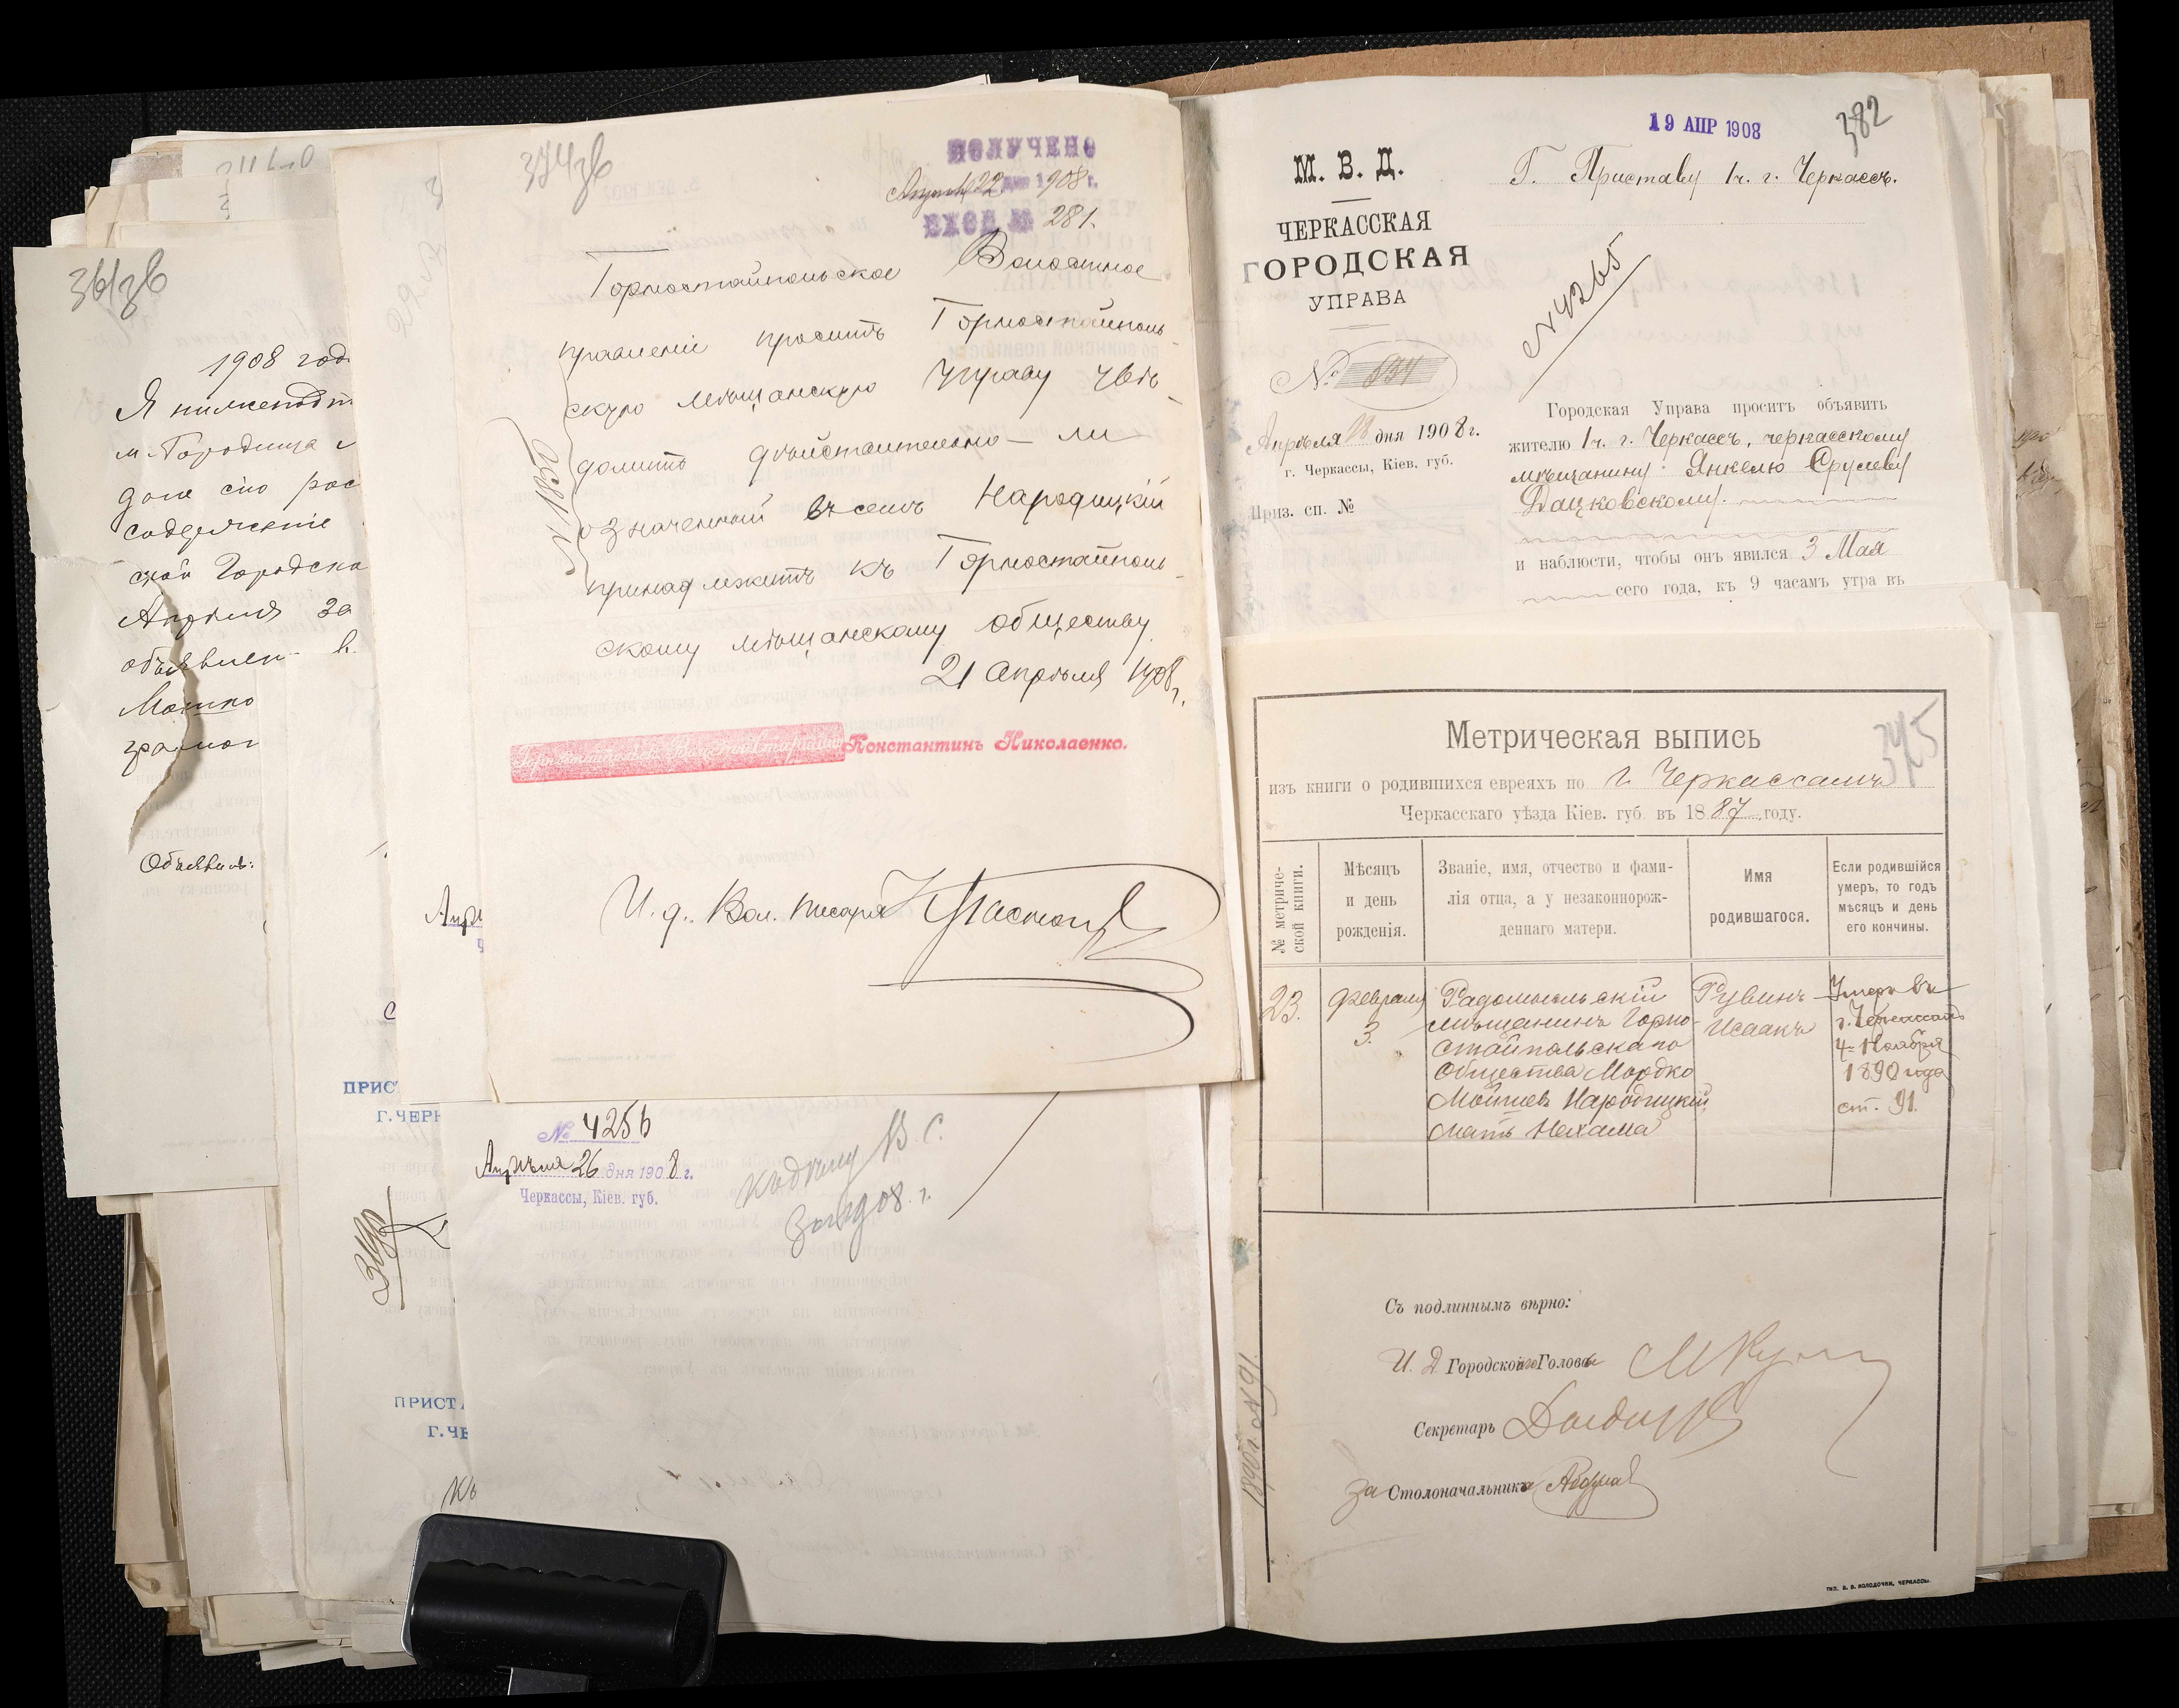 361зв
1908 год
Я нижеподп
м. Городища
дале сію рос
содержаніе
ской Городско
Апреля за
объявлен в
Мошко
грамот
Объявилъ:
374зв
ПОЛУЧЕНО
Апреля 22 дня 1908 г.
ВХОД № 281.
Горностайпольское Волостное
правленіе проситъ Горностайполь-
скую мѣщанскую Управу увѣ-
домить дѣйствительно-ли
означенный въ семъ Народицкій
принадлежитъ къ Горностайполь-
скому мѣщанскому обществу.
21 Апрѣля 1908 г.
№ 1850
Горностайпольскій Волостной Старшина Константинъ Николаенко.
И. д. Вол. писаря
ПРИС
Г. ЧЕРН
№ 4256
Апрѣля 26 дня 1908 г.
Черкассы, Кіев. губ.
ПРИСТ
Г. ЧЕ
Къ
19 АПР 1908
382
М. В. Д.
ЧЕРКАССКАЯ
ГОРОДСКАЯ
УПРАВА
№ 834
Апрѣля 18 дня 1908 г.
г. Черкассы, Кіев. губ.
Приз. сп. №
Г. Приставу 1 ч. г. Черкассъ.
№ 4265
Городская Управа проситъ объявить
жителю 1 ч. г. Черкассъ, черкасскому
мѣщанину Янкелю Срулеву
Дацковскому.
и наблюсти, чтобы онъ явился 3 Мая
сего года, къ 9 часамъ утра въ
375
Метрическая выпись
изъ книги о родившихся евреяхъ по г. Черкассамъ
Черкасскаго уѣзда Кіев. губ. въ 1887 году.
№ метриче-
ской книги.
Мѣсяцъ
и день
рожденія.
Званіе, имя, отчество и фами-
лія отца, а у незаконнорож-
деннаго матери.
Имя
родившагося.
Если родившійся
умеръ, то годъ
мѣсяцъ и день
его кончины.
23.
Февраля
3.
Радомысльскій
мѣщанинъ Горно-
стайпольскаго
Общества Мордко
Мошиевъ Народицкій,
мать Нехама
Рувинъ
Исаакъ
Умеръ въ
г. Черкассахъ
4 Ноября
1890 года
ст. 91.
1890 г. № 91.
Съ подлиннымъ вѣрно:
И. Д. Городского Головы
Секретарь
За Столоначальника
ТИП. В. В. КОЛОДОЧКИ, ЧЕРКАССЫ.